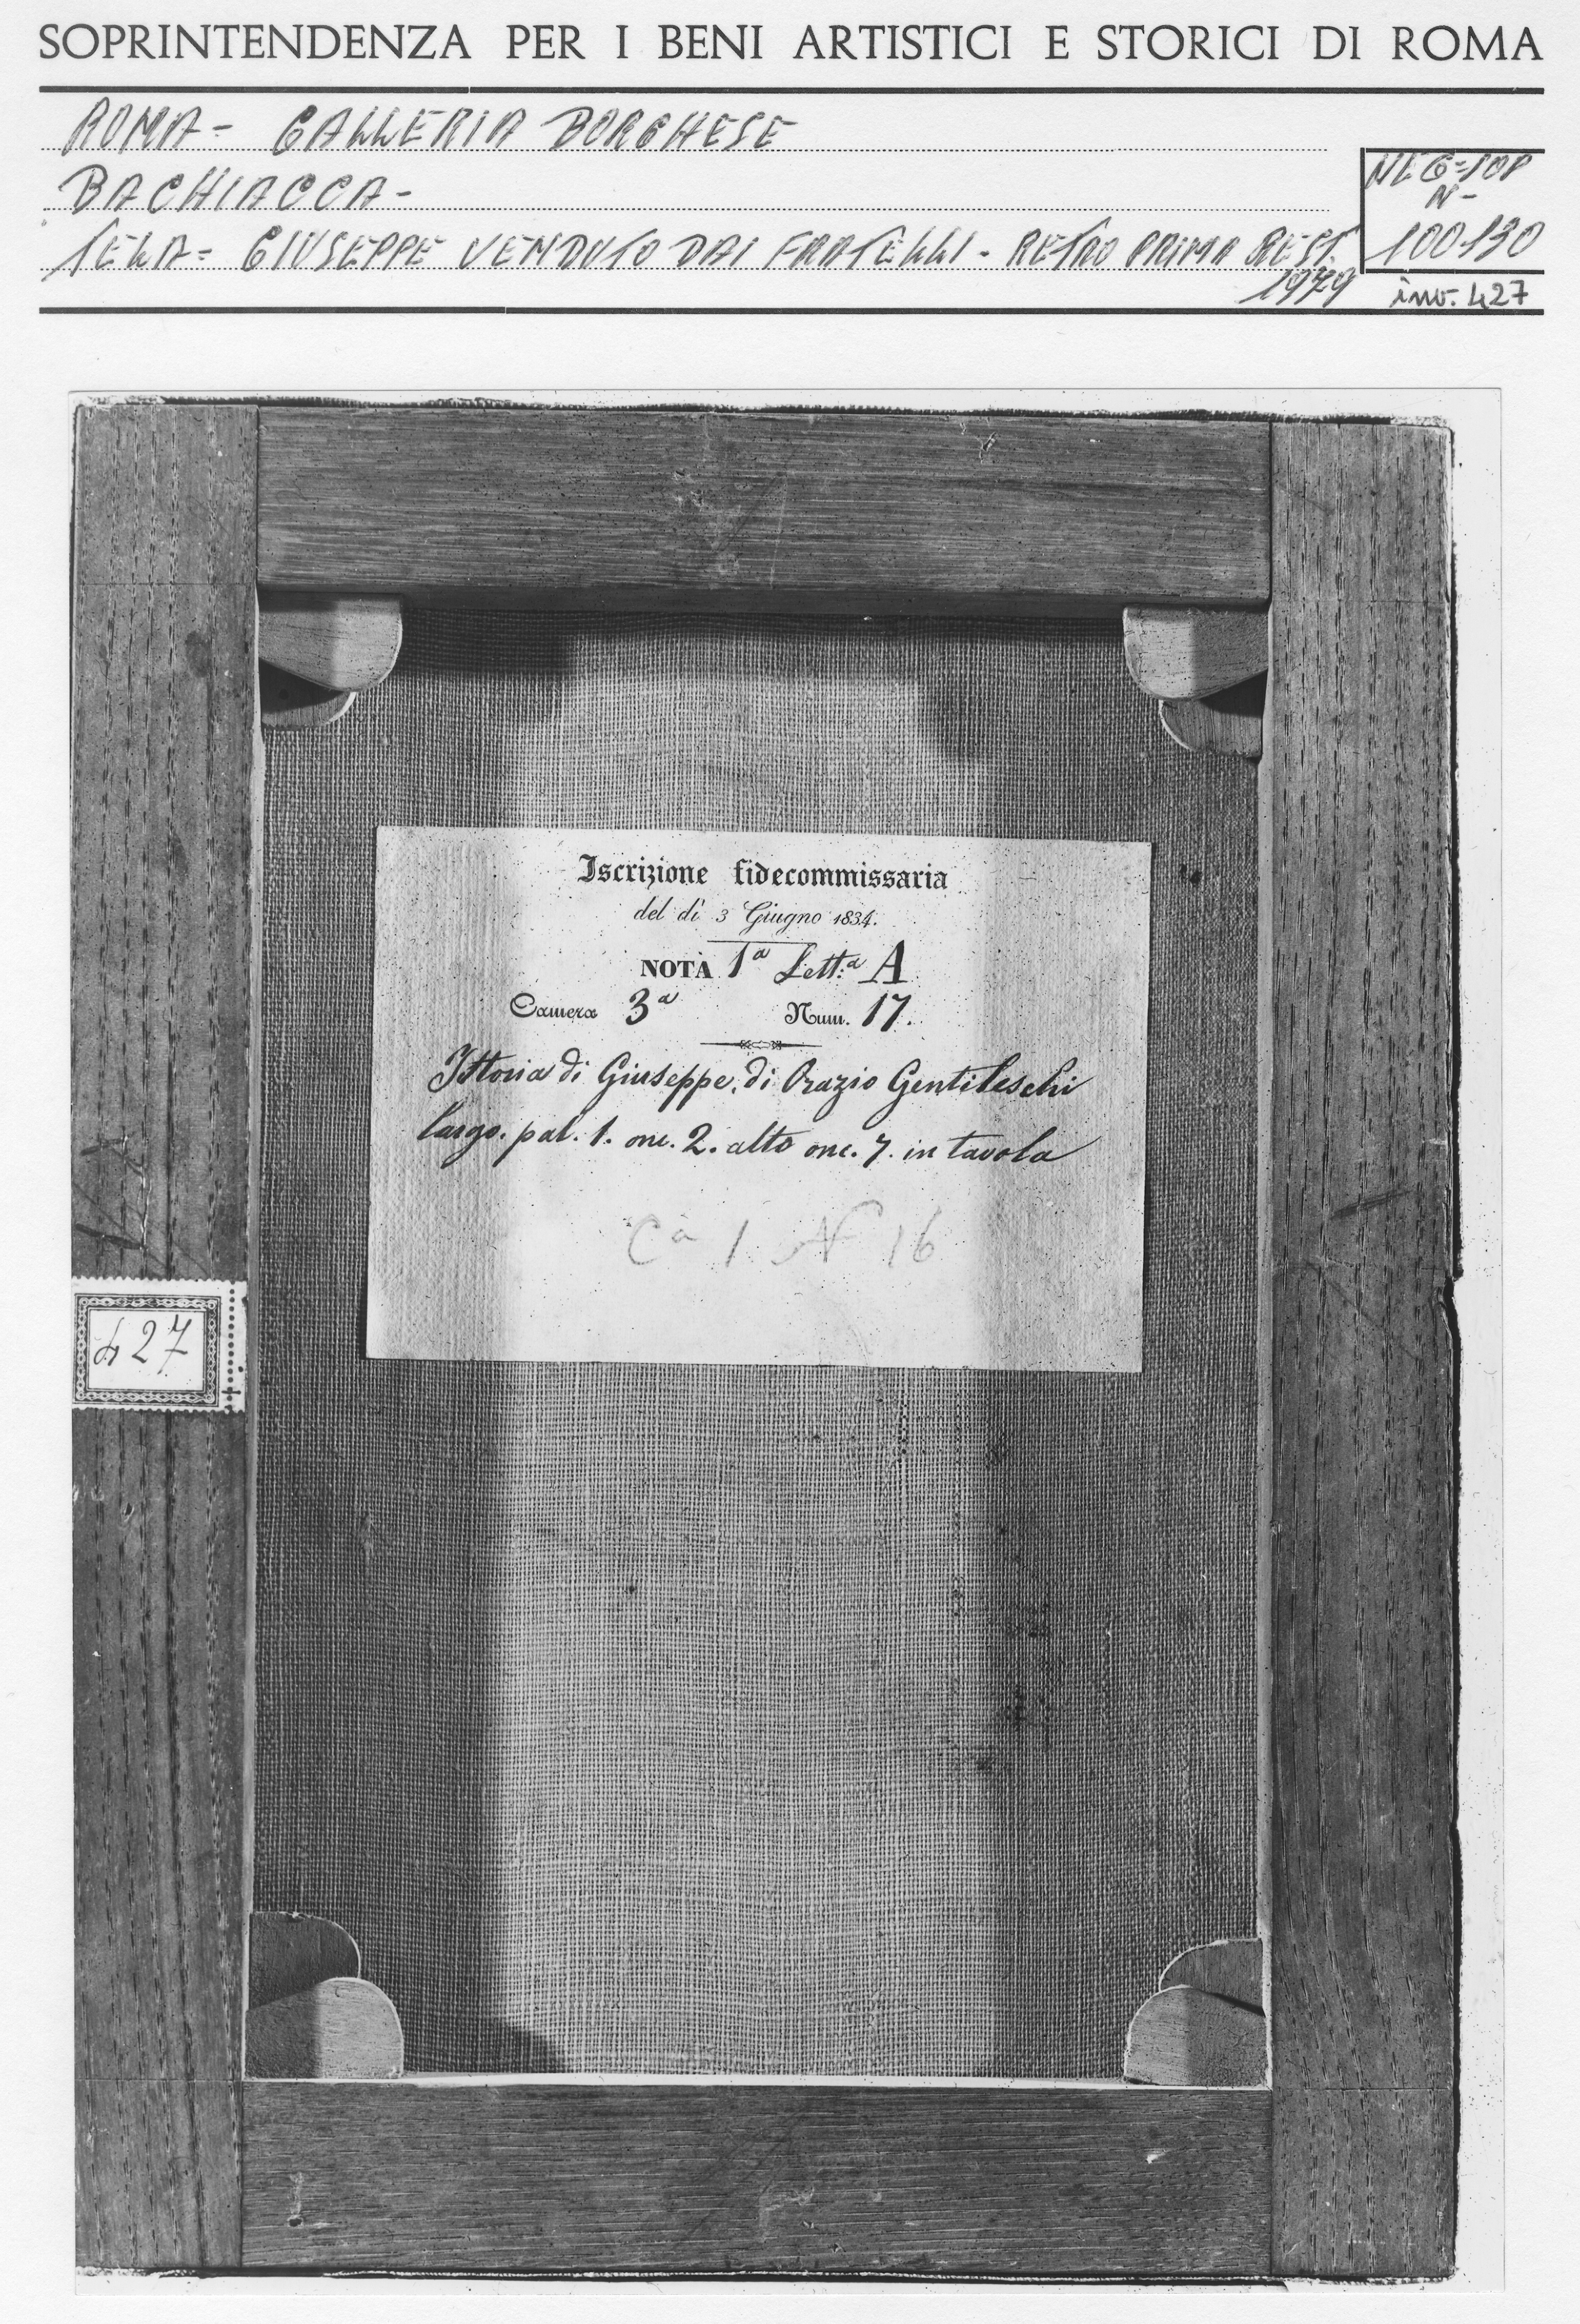 SOPRINTENDENZA PER I BENI ARTISTICI E STORICI DI ROMA
ROMA - GALLERIA BORGHESE
BACHIACCA -
TELA = GIUSEPPE VENDUTO DAI FRATELLI - RETRO PRIMA REST.
1979
NEG=SOP
N-
100190
inv. 427
Iscrizione fidecommissaria
del dì 3 Giugno 1834.
NOTA 1ª Lett:ª A
Camera 3ª Num. 17.
Istoria di Giuseppe, di Orazio Gentileschi
largo. pal. 1. onc. 2. alto onc. 7. in tavola
Cª 1 N 16
427